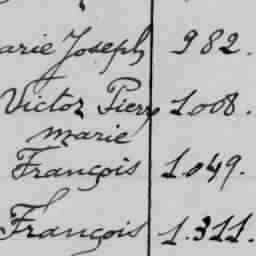 arie Joseph 982.
Victor Pierre 1.008.
marie
François 1.049.
François 1.311.